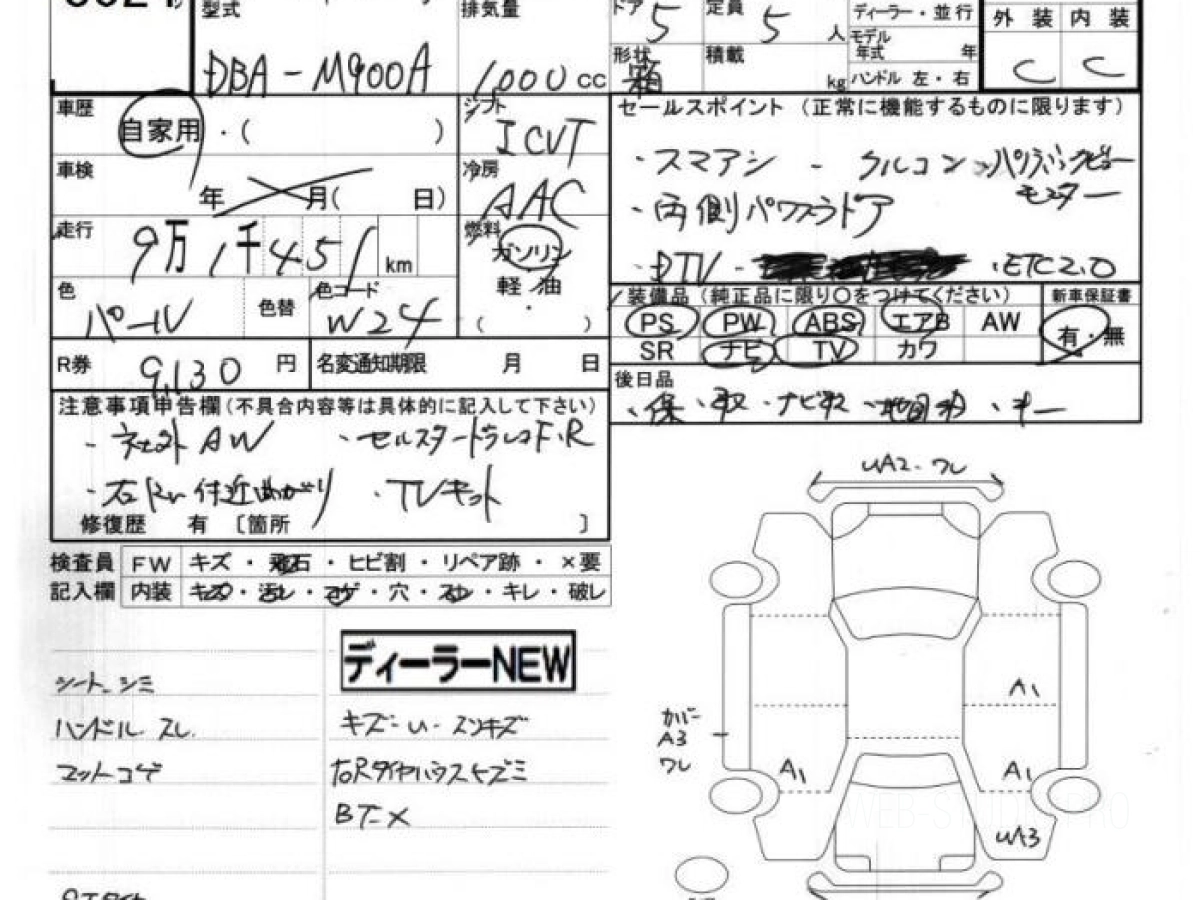 型式 排気量 ドア 5 定員 5 人 ディーラー・並行 外装 内装
モデル年式 年
DBA-M900A 1000 cc 形状 箱 積載 kg ハンドル 左・右 C C
車歴 自家用・( ) シフト ICVT セールスポイント (正常に機能するものに限ります)
・スマアシ - クルコン
車検 年 月( 日) 冷房 AAC モニター
・両側パワスラドア
走行 9万1千451 km 燃料 ガソリン ・DTV- ・ETC2.0
軽油
( ・ )
色 パール 色替 色コード W24 装備品 (純正品に限り○をつけてください) 新車保証書
PS PW ABS エアB AW 有・無
SR ナビ TV カワ
R券 9,130 円 名変通知期限 月 日
後日品
・保 ・取 ・ナビ取 ・キー
注意事項申告欄(不具合内容等は具体的に記入して下さい)
- 社外AW ・セルスタードラレコF・R
付近曲がり ・TVキット
修復歴 有 〔箇所 〕
UA2・ワレ
検査員 FW キズ・飛石・ヒビ割・リペア跡・×要
記入欄 内装 キズ・汚レ・コゲ・穴・スレ・キレ・破レ
ディーラーNEW
シート シミ
ハンドル スレ キズ-U-スリキズ
マットコゲ
BT-X
カバー
A3
ワレ
A1
A1
A1
UA3
WEB-STUDIO.PRO